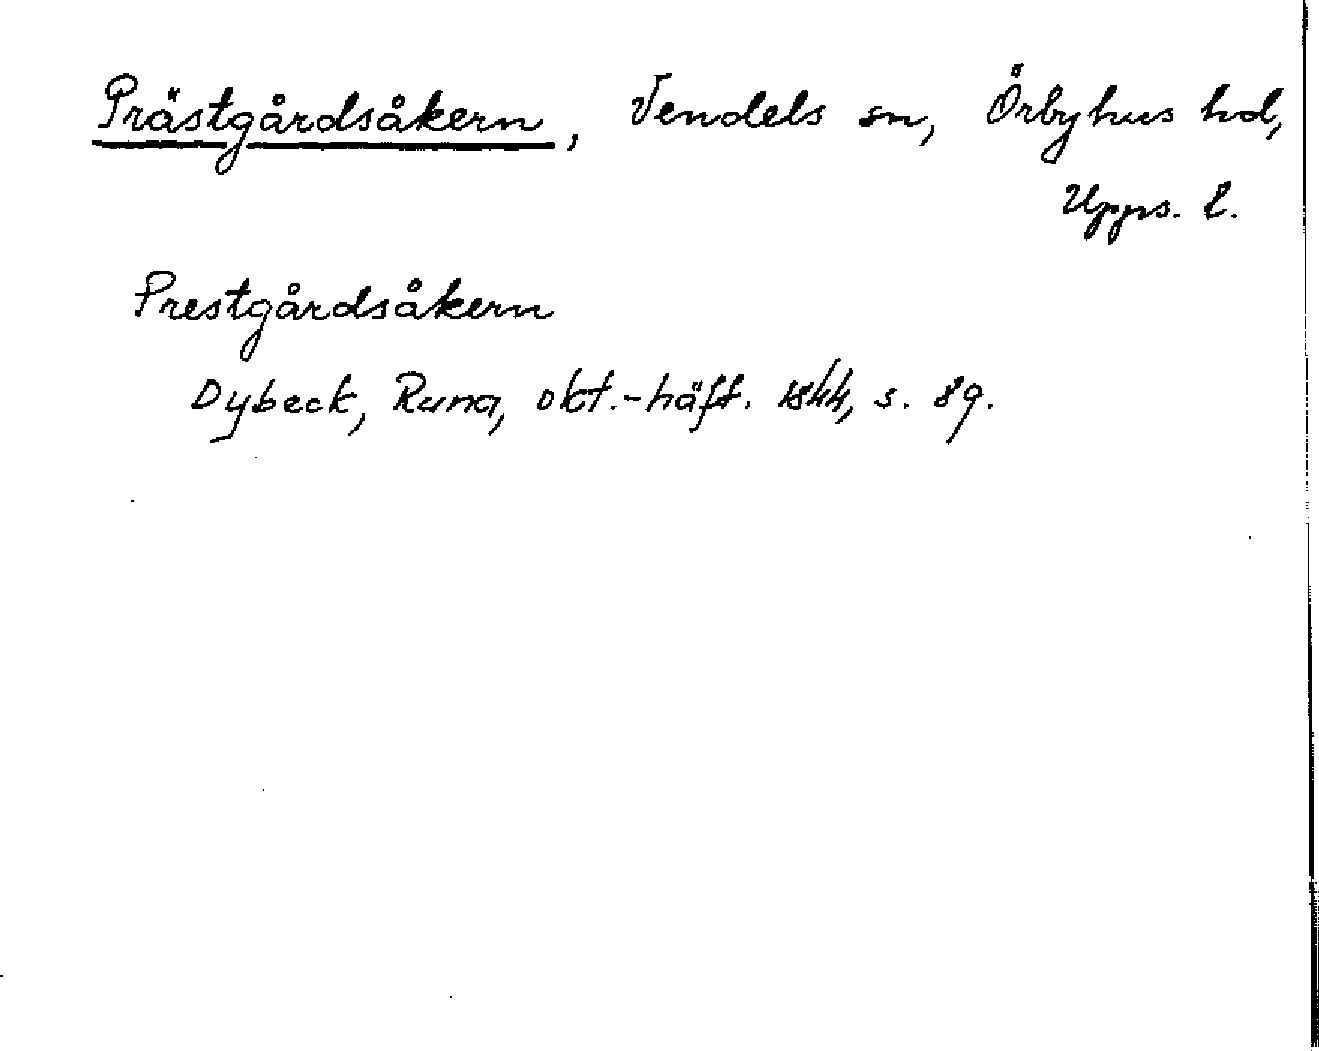 Prästgårdsåkern, Vendels sn, Örbyhus hd,
Upps. l.
Prestgårdsåkern
Dybeck, Runa, okt.-häft. 1844, s. 89.